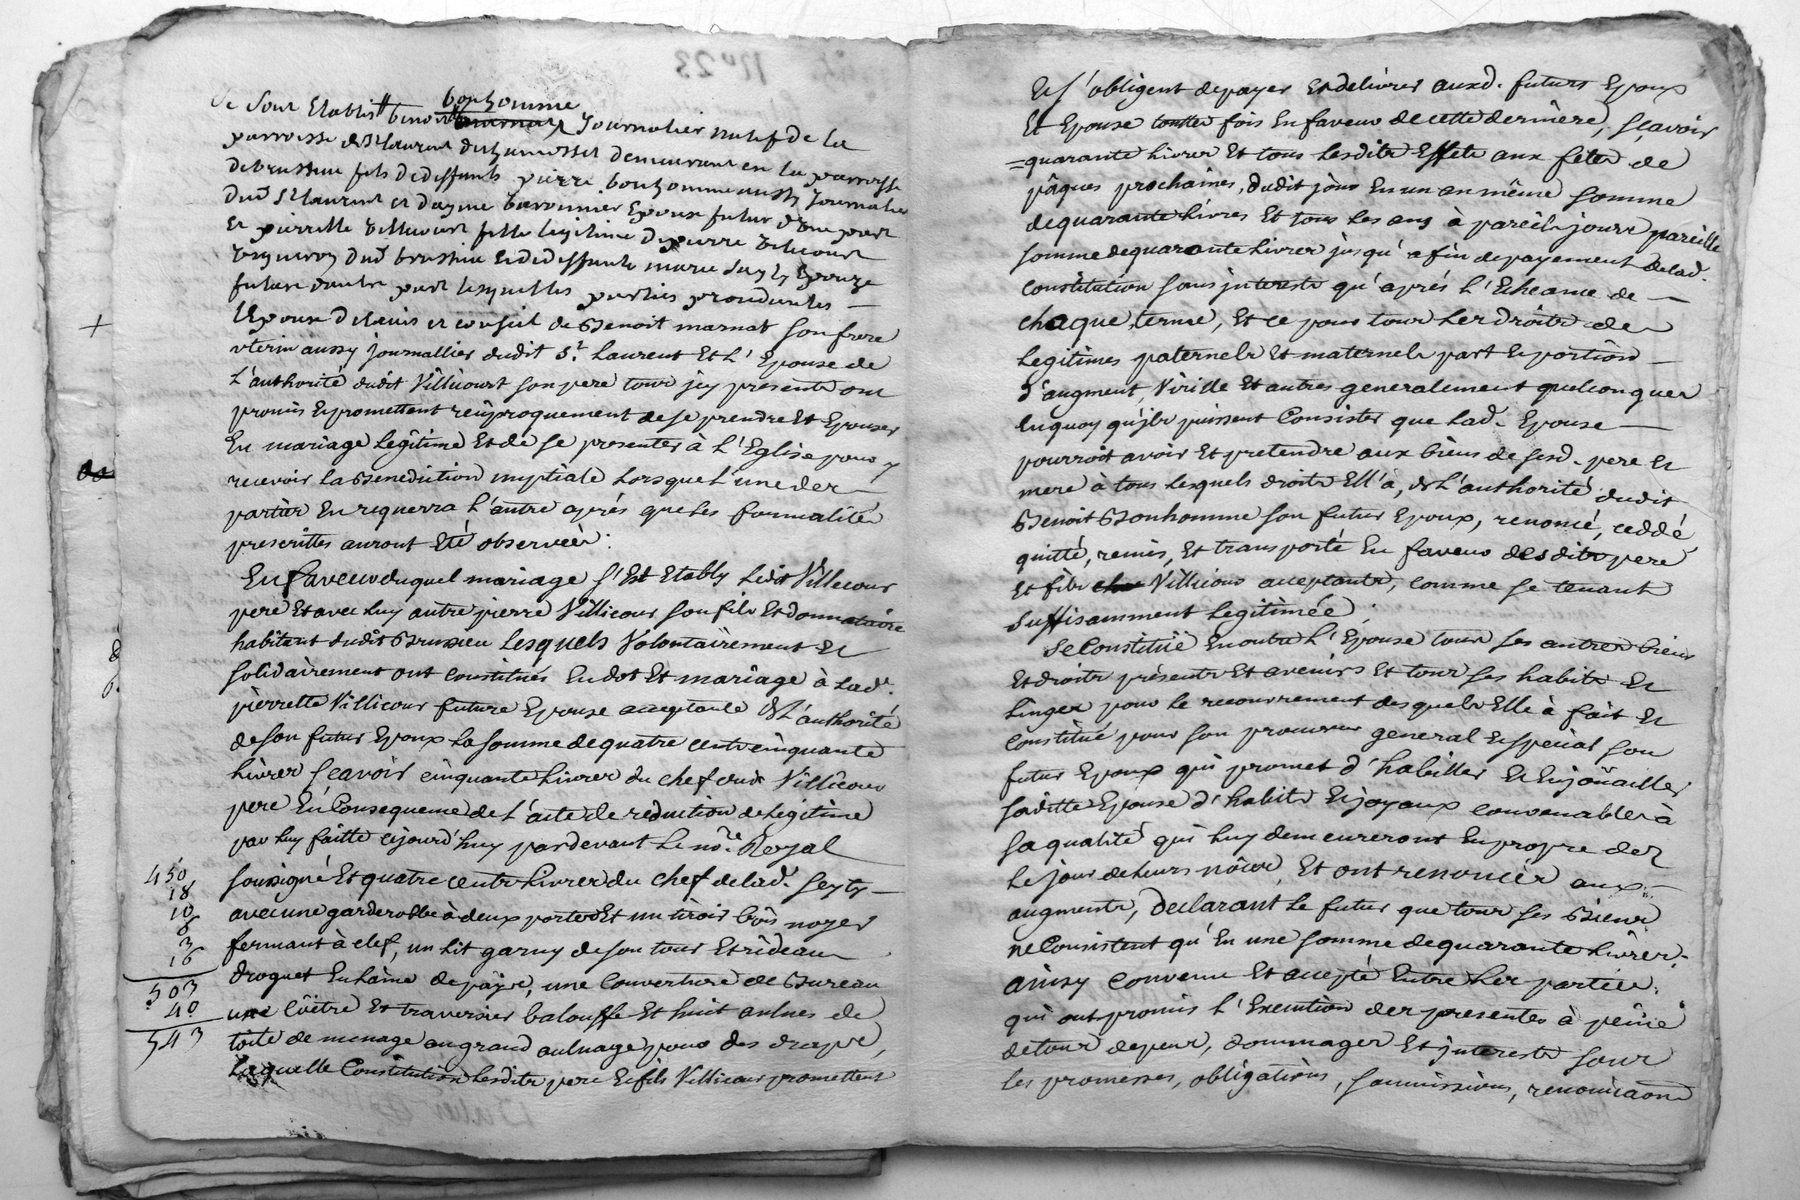 Se sont Etablis benoit bonhomme journalier natif de la
parroisse de St laurent de chamousset demeurant en la parroisse
de brussieu fils de deffunts pierre bonhomme aussy journalier
dud St laurent et epoux futur d'une part
et pierrette Villicourt fille legitime de pierre Villicourt
vigneron dud brussieu et de deffunte marie Epouze
future d'autre part lesquelles parties procedantes
l'Epoux de l'avis et conseil de Benoit marnat son frere
uterin aussy journallier dudit St. Laurent Et L'Epouse de
L'authorité dudit Villicourt son pere tous icy presents ont
promis Et promettent reciproquement de se prendre Et Epouser
En mariage Legitime Et de se presenter à L'Eglise pour y
recevoir La Benediction nuptiale Lorsque L'une des
parties En requerra L'autre après que les formalités
prescrittes auront Eté observées.
En faveur duquel mariage s'Est Etably Ledit Villicour
pere Et avec Luy autre pierre Villicour son fils Et donnataire
habitant dudit Brussieu Lesquels volontairement Et
solidairement ont constitués En dot Et mariage à Lade.
pierrette Villicour future Epouse acceptante de L'authorité
de son futur Epoux La somme de quatre cents cinquante
Livres sçavoir cinquante Livres du chef dudt Villicour
pere En Consequence de L'acte de reduction de Legitime
par Luy faitte cejourd'huy pardevant Le nore Royal
soussigné Et quatre cents Livres du chef de lade.
avec une garderobbe à deux portes Et un tiroir bois noyer
fermant à clef, un Lit garny de son tour Et rideaux
droguet En Laine de païs, une Couverture de Bureau
une Coitre Et traversier balouffe Et huit aulnes de
toile de menage au grand aulnage pour des draps,
Laquelle Constitution Lesdits pere Et fils Villicour promettent
450
18
10
6
3
16
503
40
543
Et s'obligent de payer Et delivrer auxd. futurs Epoux
Et Epouse touttes fois En faveur de cette derniere, sçavoir
quarante Livres Et tous Lesdits Effets aux fêtes de
pâques prochaines, dudit jour En un an même somme
de quarante Livres Et tous Les ans à pareils jours pareille
somme de quarante Livres jusqu'a fin de payement de lad.
constitution sans interests qu'aprés L'Echeance de
chaque terme, Et ce pour tous Les droits de
Legitimes paternels Et maternels part Et portion
d'augment, Virille Et autres generalement quelconques
En quoy qu'ils puissent Consister que Lad. Epouse
pourroit avoir Et pretendre aux biens de sesd. pere Et
mere à tous Lesquels droits Ell'a, de L'authorité dudit
Benoit Bonhomme son futur Epoux, renoncé, ceddé
quitté, remis, Et transporté En faveur desdits pere
Et fils Villicour acceptants, comme se tenant
suffisamment Legitimée.
Se Constituë En outre L'Epouse tous ses autres biens
Et droits présents Et avenirs Et tous ses habits Et
Linges pour Le recouvrement desquels Elle à fait Et
constitué pour son procureur general Et special son
futur Epoux qui promet d'habiller Et Enjoüailler
saditte Epouse d'habits Et joyaux convenables à
sa qualité qui Luy demeureront En propre dez
Le jour de Leurs nôces, Et ont renoncés aux
augments, Declarant Le futur que tous ses Biens
ne Consistent qu'En une somme de quarante Livres,
ainsy convenu Et accepté Entre Les parties.
qui ont promis L'Execution des presentes à peine
de tous depens, dommages Et interests sous
les promesses, obligations, soumissions, renonciaons